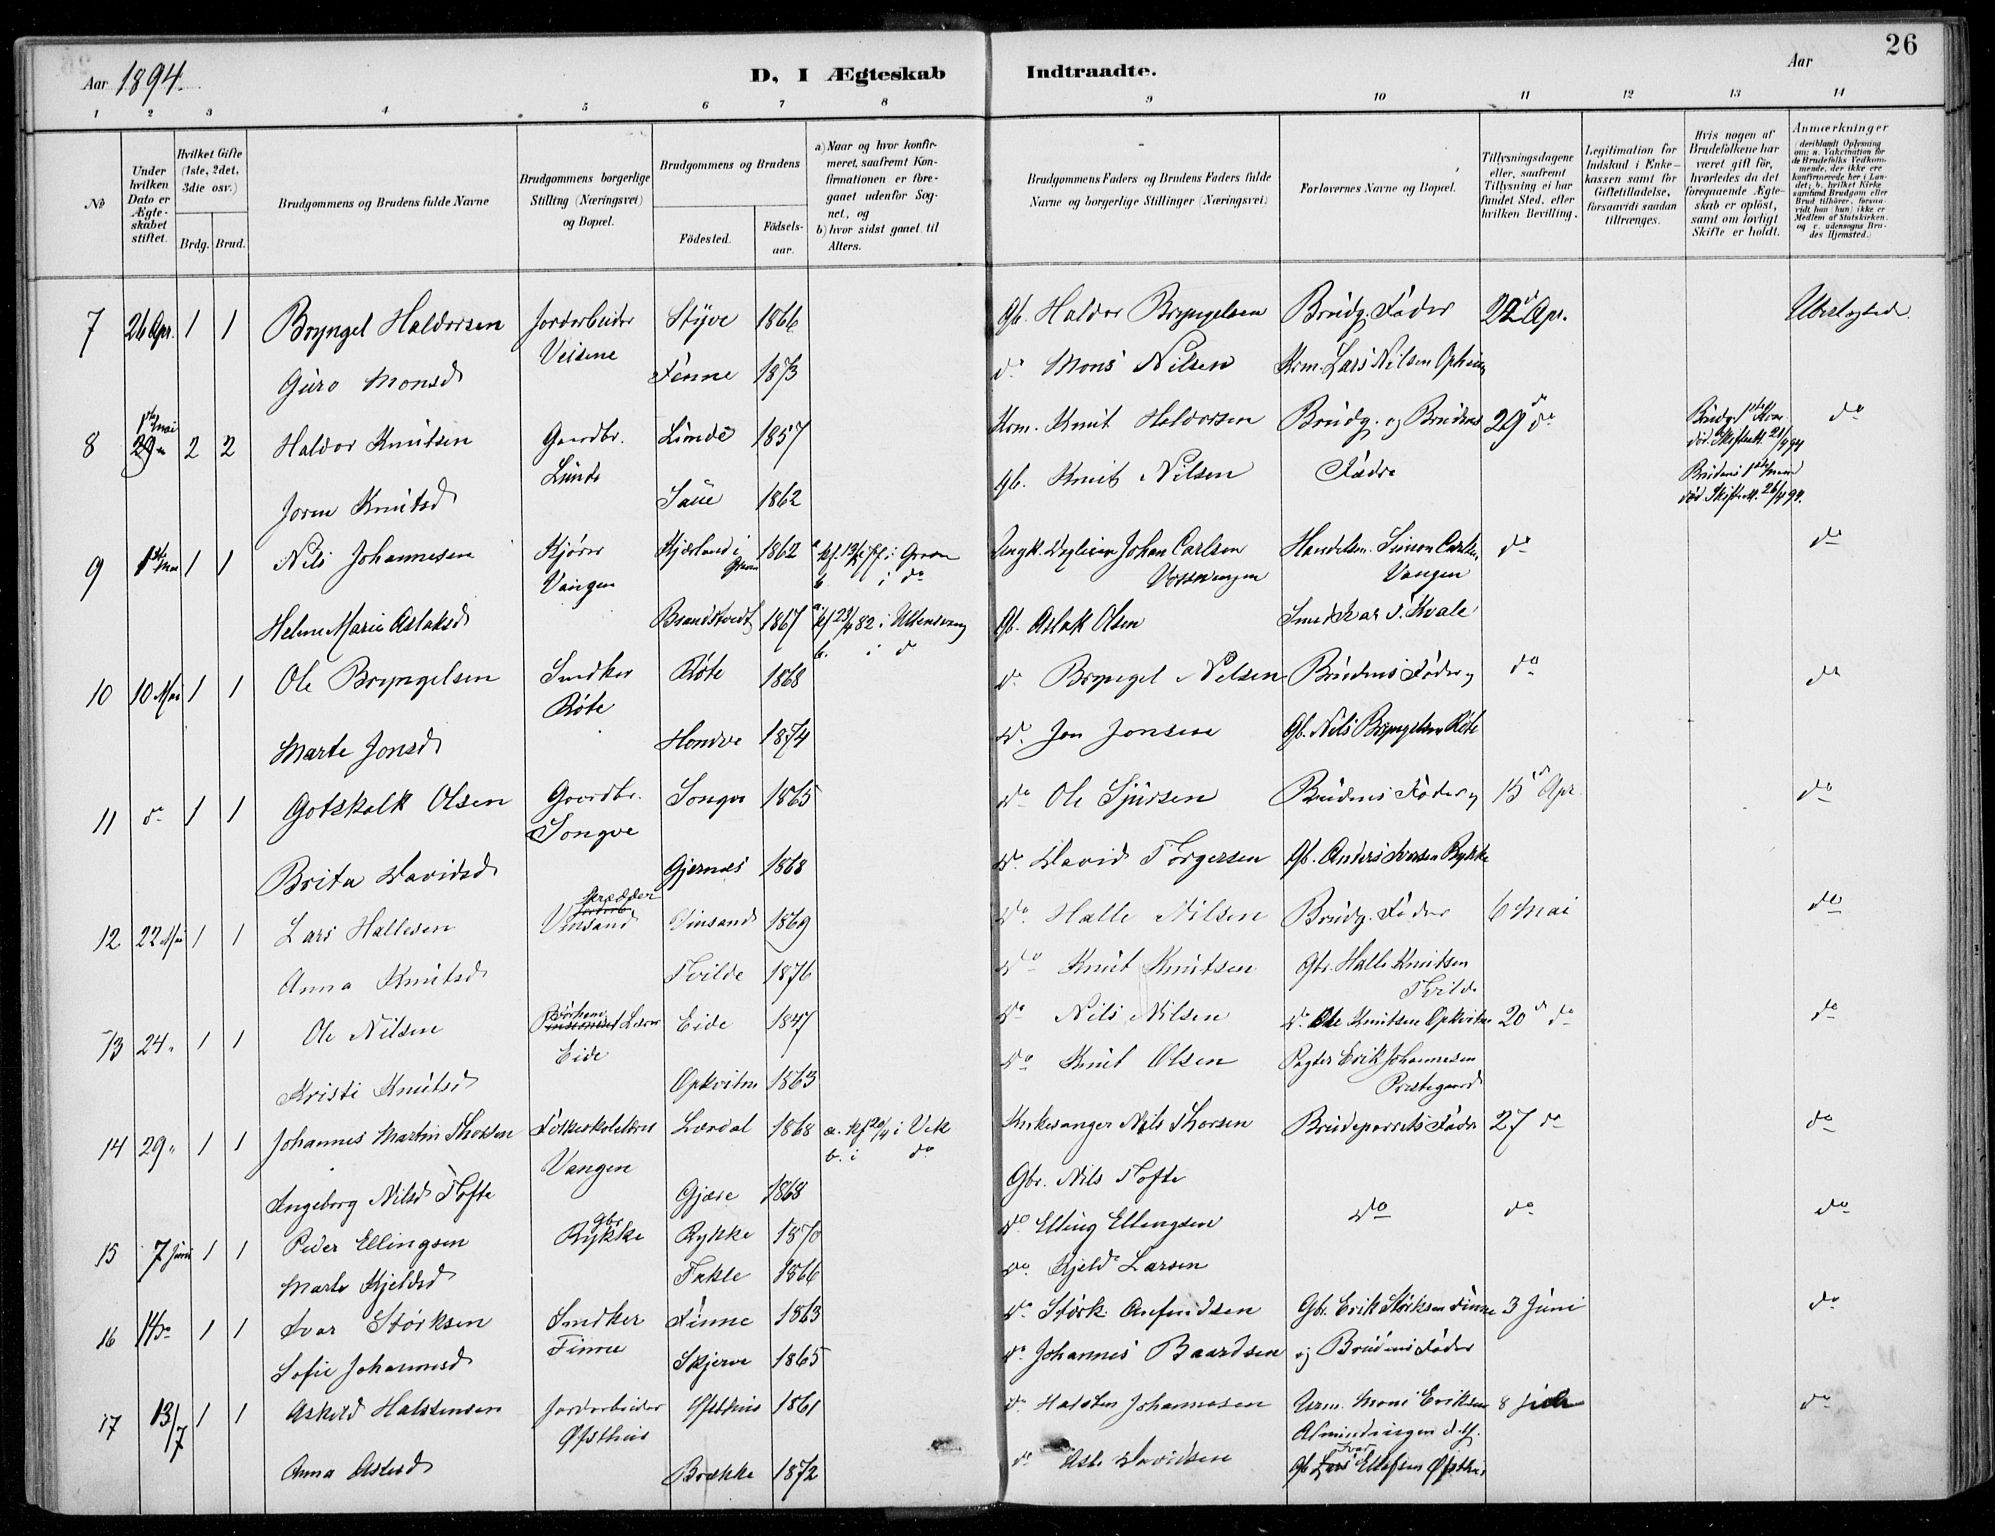 26
Aar 1894. D, I Ægteskab Indtraadte. Aar
1 2 3 4 5 6 7 8 9 10 11 12 13 14
No
Under hvilken Dato er Ægteskabet stiftet.
Hvilket Gifte (1ste, 2det, 3die osv.)
Brdg. Brud.
Brudgommens og Brudens fulde Navne
Brudgommens borgerlige Stilling (Næringsvei) og Bopæl.
Brudgommens og Brudens
Fødested. Fødselsaar.
a) Naar og hvor konfirmeret, saafremt Konfirmationen er foregaaet udenfor Sognet, og
b) hvor sidst gaaet til Alters.
Brudgommens Faders og Brudens Faders fulde Navne og borgerlige Stillinger (Næringsvei)
Forlovernes Navne og Bopæl.
Tillysningsdagene eller, saafremt Tillysning ei har fundet Sted, efter hvilken Bevilling.
Legitimation for Indskud i Enkekassen samt for Giftetilladelse, forsaavidt saadan tiltrænges.
Hvis nogen af Brudefolkene har været gift før, hvorledes da det foregaaende Ægteskab er opløst, samt om lovligt Skifte er holdt.
Anmærkninger (deriblandt Oplysning om: a. Vakcination for de Brudefolks Vedkommende, der ikke ere konfirmerede her i Landet; b. hvilket Kirkesamfund Brudgom eller Brud tilhører, forsaavidt han (hun) ikke er Medlem af Statskirken, og c. udensogns Brudes Hjemsted.)
7 26 Apr. 1 1 Bryngel Haldorsen Jordarbeider Styve 1866 Gb. Haldor Bryngelsen Brudg. Fader 22 Apr. Ubeslegtede.
Guro Monsd Veisene Finne 1873 do Mons Nilsen Krm. Lars Nilsen Opheim
8 1ste mai 29 2 2 Haldor Knutsen Gaardbr. Lunde 1857 Krm. Knut Haldorsen Brudg. og Brudens 29 do Brudg. 1ste Kone død. Skifteatt. 21/4 94 do
Joren Knutsd Lunde Saue 1862 Gb. Knut Nilsen Fædre Brudens 1ste man død Skifteatt. 26/4 94.
9 1ste Mai 1 1 Nils Johannesen Kjører Kjærland i Graven 1862 a kf. i Graven Johan Carlsen Handelsm. Simon Carlsen do do
Vangen b. i do Vossevangen Vangen
Helene Marie Aslaksd Brandstvedt 1867 a. kf 23/4 82 i Ullensvang Gb. Aslak Olsen Smed Ivar I. Kvale
b. i d
10 10 Mai 1 1 Ole Bryngelsen Snedker Røte 1868 do Bryngel Nilsen Brudens Fader og do do
Røte
Marte Jonsd Hondve 1874 do Jon Jonsen Gb. Nils Bryngelsen Røte
11 do 1 1 Gotskalk Olsen Gaardbr. Songve 1865 do Ole Sjursen Brudens Fader og 15 Apr. do
Songve
Brita Davidsd Gjernes 1868 do David Torgersen Gb. Anders Ivarsen Rykke
12 22 Mai 1 1 Lars Hallesen Skrædder Vinsand Vinsand 1869 do Halle Nilsen Brudg. Fader 6 Mai do
Anna Knutsd Tvilde 1876 do Knut Knutsen Gbr. Halle Knutsen Tvilde
13 24 " 1 1 Ole Nilsen Eide 1847 do Nils Nilsen do Ole Knutsen Opkvitne 20 do do
Eide
Kristi Knutsd Opkvitne 1863 do Knut Olsen Pagter Erik Johannesen Prestegaard
14 29 " 1 1 Johannes Martin Thorsen Folkeskolelærer Lærdal 1868 a. kf i Vik Kirkesanger Nils Thorsen Brudeparrets Fædre 27 do do
Vangen b. i do
Ingeborg Nilsd Tofte Gjære 1868 Gbr. Nils Tofte
15 7 Juni 1 1 Peder Ellingsen Gbr Rykke Rykke 1870 do Elling Ellingsen do do do
Marte Kjeldsd Takle 1866 do Kjeld Larsen
16 14 do 1 1 Ivar Størksen Snedker Finne 1863 do Størk Anfindsen Gbr. Erik Størksen Finne 3 Juni do
Sofie Johannesd Finne Skjerve 1865 do Johannes Baardsen og Brudens Fader
17 13/7 1 1 Askeld Halstensen Jordarbeider Øfsthus 1861 do Halsten Johannesen Arm. Mons Eriksen 8 juli do
Øfsthus Almindingen
Anna Davidsen Brække 1872 Gb Ivar Ellefsen Øfsthus